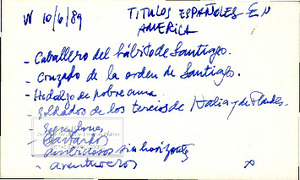 V 10/6/89 TITULOS ESPAÑOLES EN
AMERICA
- Caballero del hábito de Santiago.
- Cruzado de la orden de Santiago.
- Hidalgo en pobre cuna.
- Soldados de los tercios de Italia y de Flandes.
- Segundones
- Bastardos
- Ambiciosos sin horizonte
- aventureros